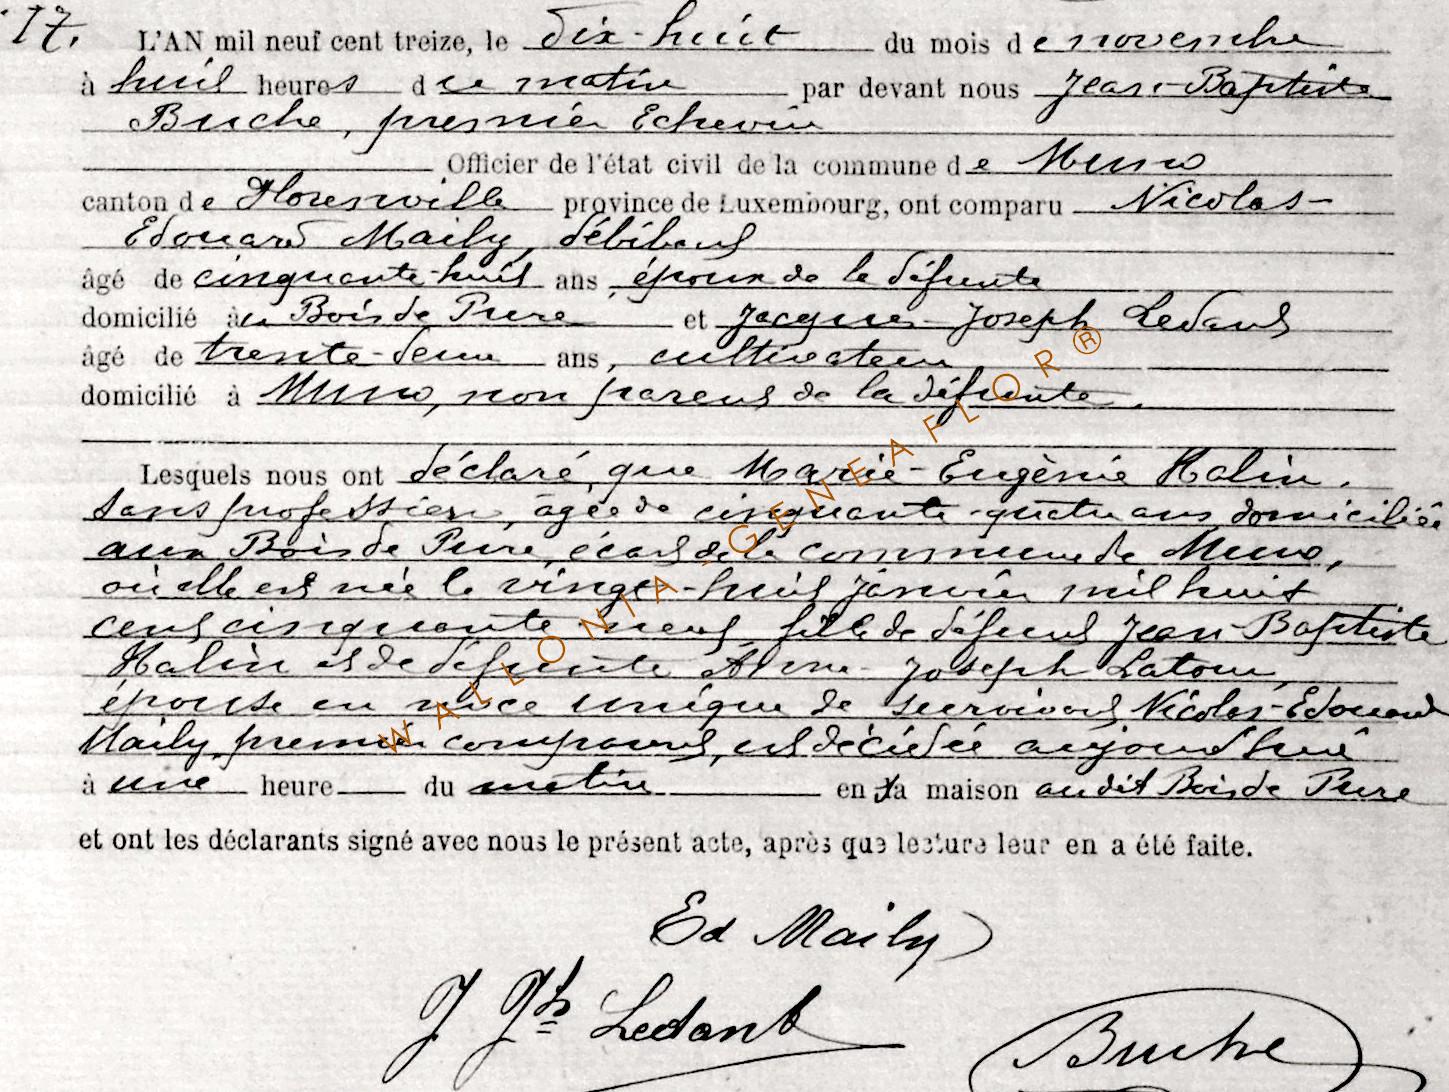 17.
L'AN mil neuf cent treize, le dix-huit du mois de novembre
à huit heures du matin par devant nous Jean-Baptiste
Buche, premier Echevin
Officier de l'état civil de la commune de Muno
canton de Florenville province de Luxembourg, ont comparu Nicolas-
Edouard Maily, débitant
âgé de cinquante-huit ans, époux de la défunte
domicilié au Bois de Pure et Jacques-Joseph Ledant
âgé de trente-deux ans, cultivateur
domicilié à Muno, non parent de la défunte.
Lesquels nous ont déclaré, que Marie-Eugènie Halin,
sans profession, âgée de cinquante-quatre ans domiciliée
aux Bois de Pure, écart de la commune de Muno,
où elle est née le vingt-huit janvier mil huit
cent cinquante neuf, fille de défunt Jean-Baptiste
Halin et de défunte Anne-Joseph Latour,
épouse en noce unique de survivant Nicolas-Edouard
Maily, premier comparant, est décédée aujourd'hui
à une heure du matin en sa maison audit Bois de Pure
et ont les déclarants signé avec nous le présent acte, après que lecture leur en a été faite.
Ed Maily
J Jph Ledant
Buche
WALLONIA-GENEAFLOR®